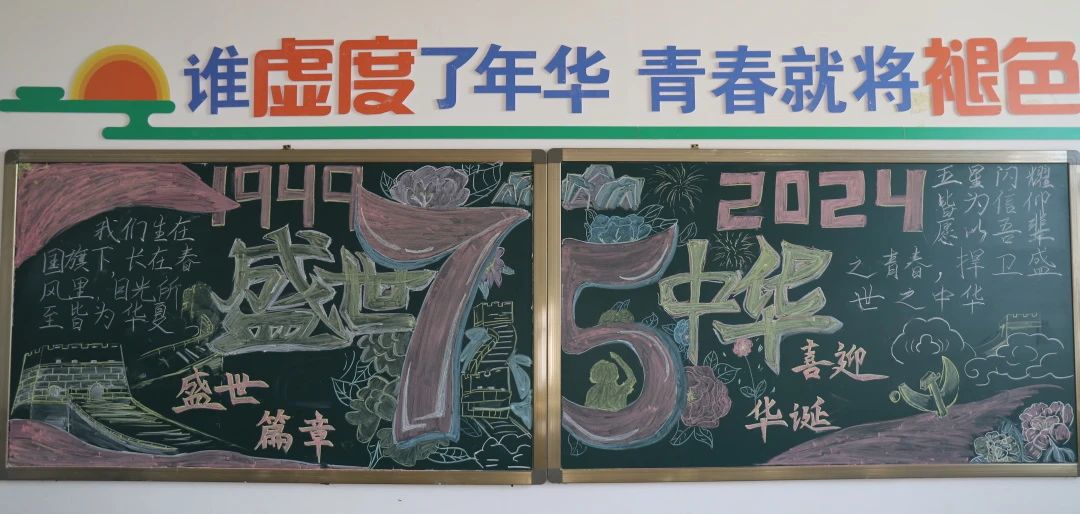 谁虚度了年华 青春就将褪色
1949
我们生在
国旗下,长在春
风里,目光所
至皆为华夏
盛世
盛世
篇章
75
2024
中华
五星闪耀
皆为信仰
愿以吾辈
之青春,捍卫盛
世之中华
喜迎
华诞